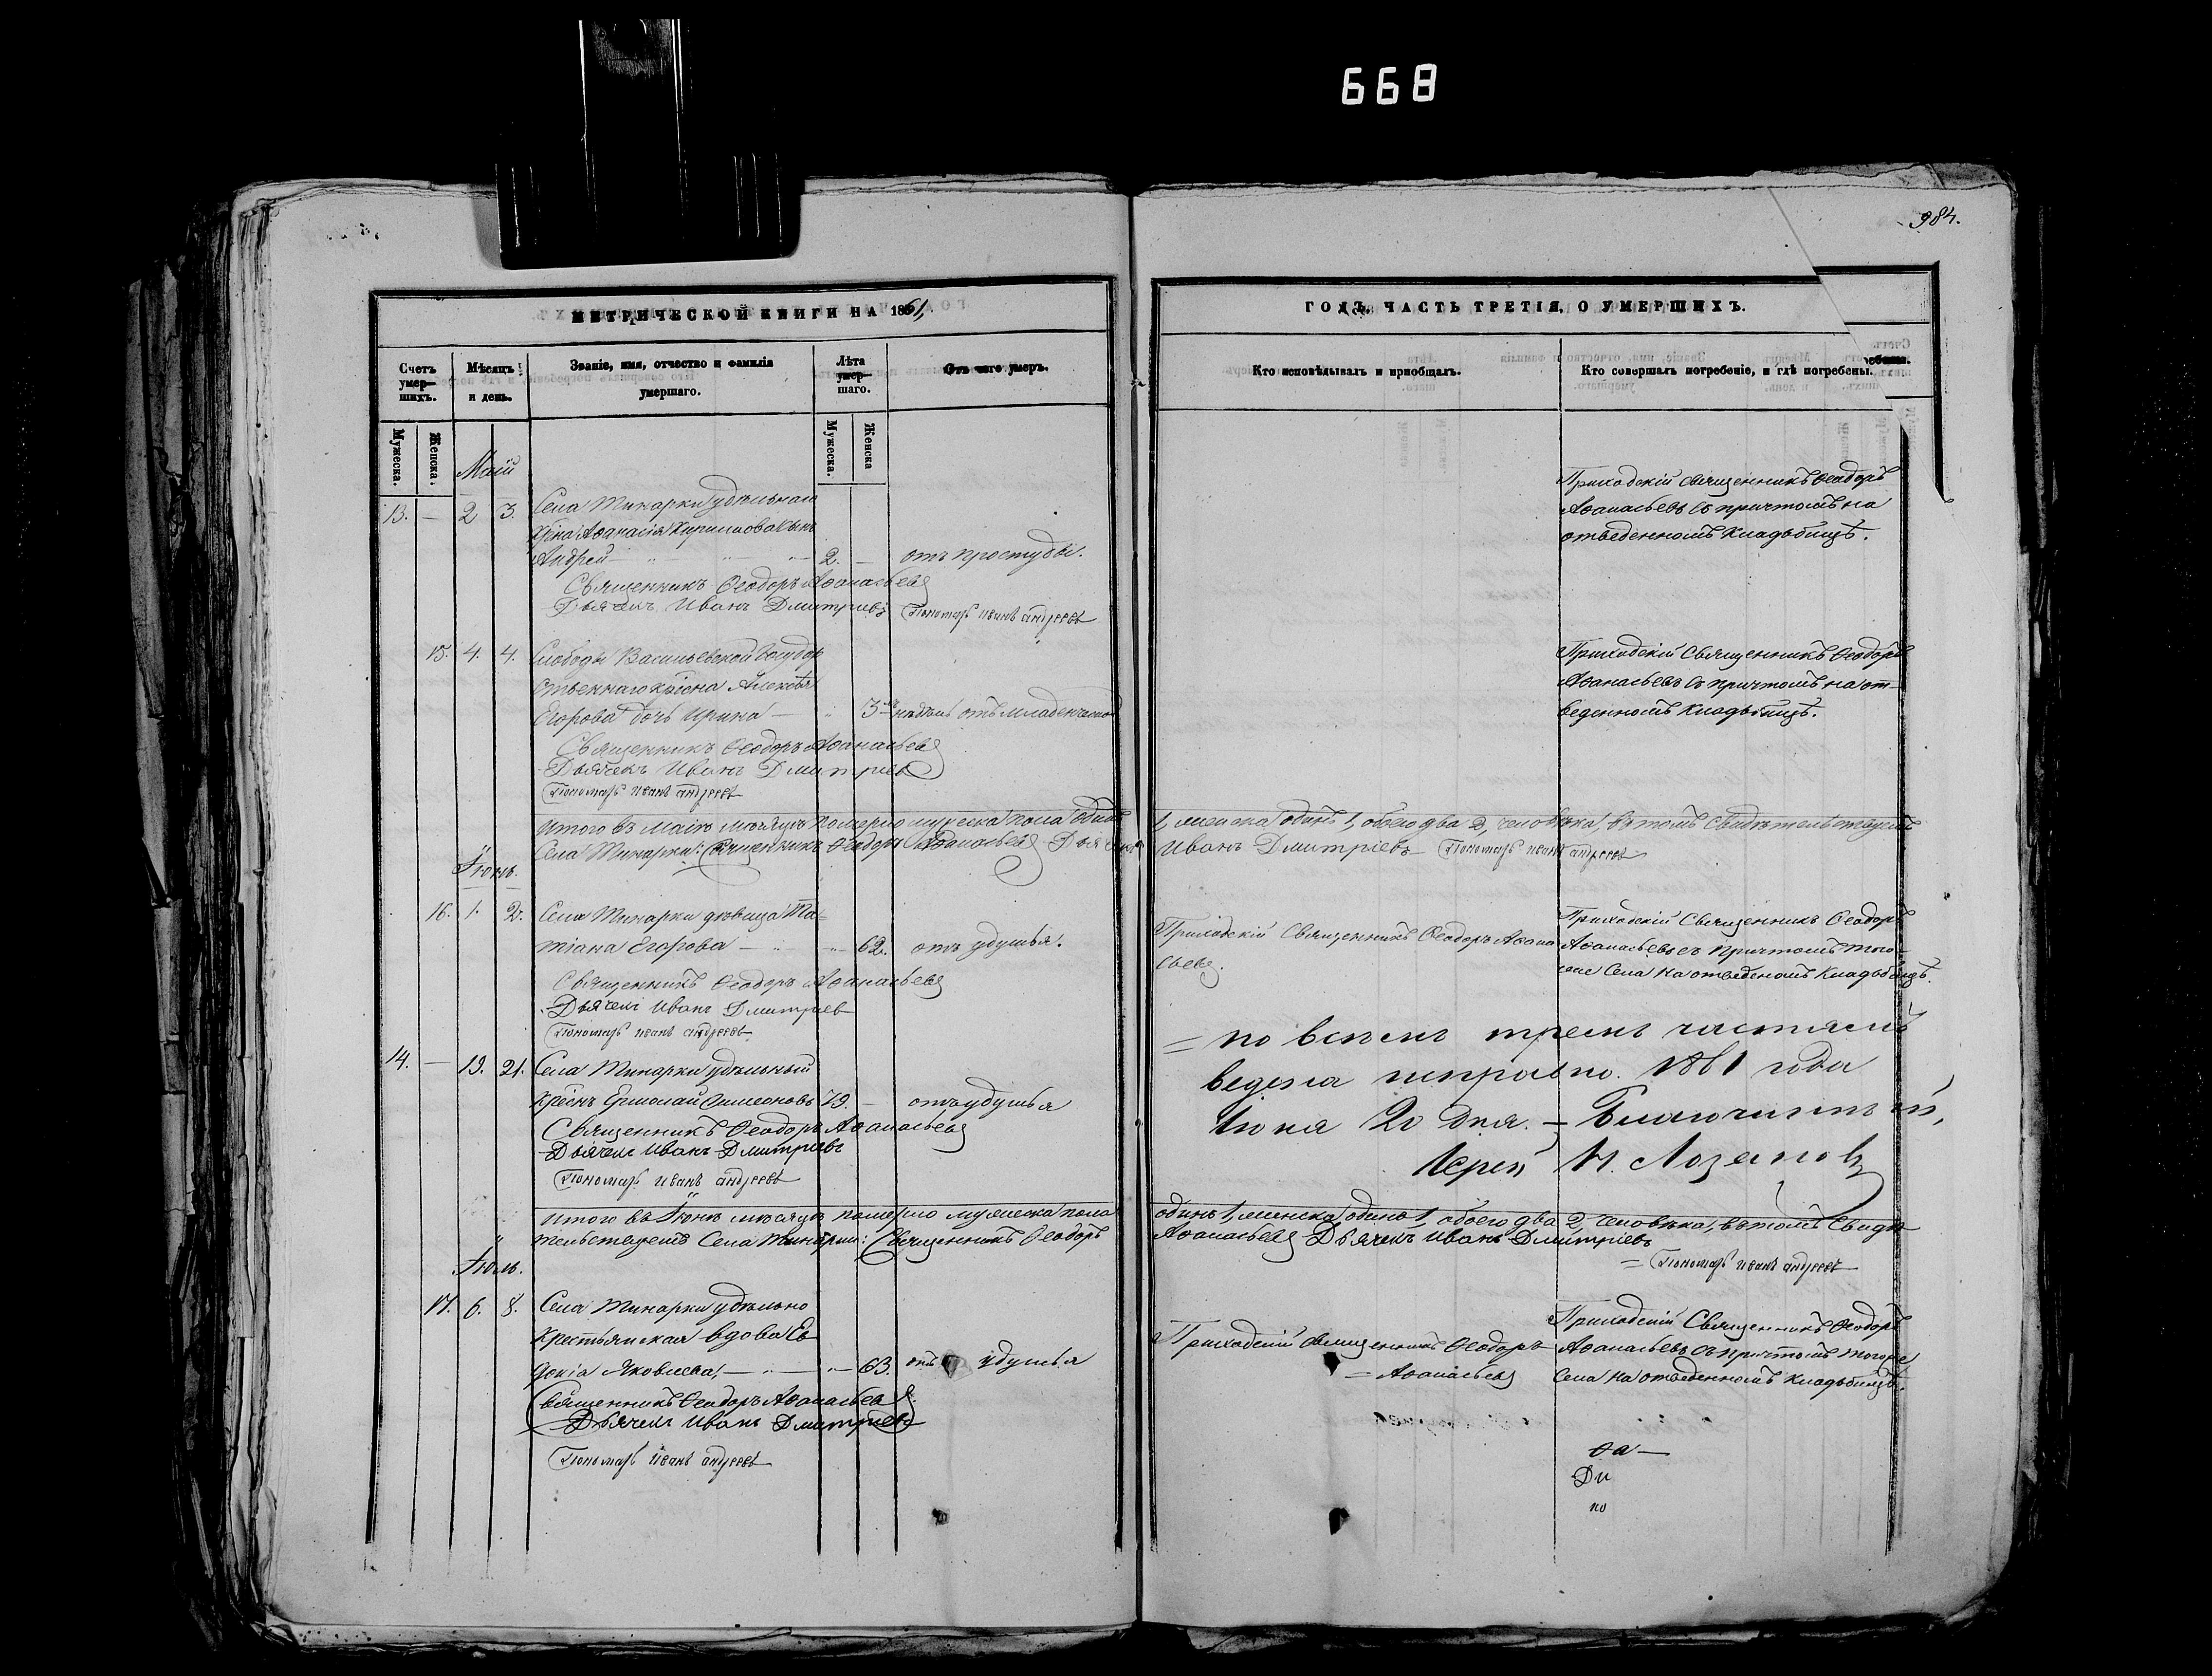 668
984.
МЕТРИЧЕСКОЙ КНИГИ НА 1861,
Счетъ умер-шихъ.
Мѣсяцъ и день.
Званіе, имя, отчество и фамилія умершаго.
Лѣта умер-шаго.
Отъ чего умеръ.
Мужеска.
Женска.
Мужеска.
Женска
Маій
13. — 2 3. Села Тинарки удѣльнаго
Кр͠іна Аѳанасія Кириллова сынъ
Андрей — 2. — отъ простуды.
Священникъ Ѳеодоръ Аѳанасьевъ
Дьячекъ Иванъ Дмитріевъ Пономарь Иванъ Андреевъ
15. 4. 4. Слободы Васильевской Государ
ственнаго кр͠іона Алексѣя
Егорова дочь Ирина — 3 недѣль отъ младенческой
Священникъ Ѳеодоръ Аѳанасьевъ
Дьячекъ Иванъ Дмитріевъ
Пономарь Иванъ Андреевъ
Итого въ Маію мѣсяцѣ померло мужеска пола одинъ
Села Тинарки: Священникъ Ѳеодоръ Аѳанасьевъ Дьячекъ
Іюнь.
16. 1. 2. Села Тинарки дѣвица Та-
тіана Егорова — 62. отъ удушья.
Священникъ Ѳеодоръ Аѳанасьевъ
Дьячекъ Иванъ Дмитріев
Пономарь Иванъ Андреевъ
14. — 19. 21. Села Тинарки удѣльный
Кр͠еснъ Ермолай Симеоновъ 79. — отъ удушья
Священникъ Ѳеодоръ Аѳанасьевъ
Дьячекъ Иванъ Дмитріевъ
Пономарь Иванъ Андреевъ
Итого въ Іюнѣ мѣсяцѣ померло мужеска пола
тельствуемъ Села Тинарки: Священникъ Ѳеодоръ
Іюль.
17. 6. 8. Села Тинарки удѣльно
крестьянская вдова Ев
докія Яковлева, — 63. отъ удушья
Священникъ Ѳеодоръ Аѳанасьевъ
Дьячекъ Иванъ Дмитріевъ
Пономарь Иванъ Андреевъ
ГОДЪ, ЧАСТЬ ТРЕТІЯ, О УМЕРШИХЪ.
Кто исповѣдывалъ и пріобщалъ.
Кто совершалъ погребеніе, и гдѣ погребены.
Приходскій священникъ Ѳеодоръ
Аѳанасьевъ съ причтомъ на
отведенномъ кладбищѣ.
Приходскій Священникъ Ѳеодоръ
Аѳанасьевъ съ причтомъ на от-
веденномъ кладбищѣ.
1, женска одинъ 1, обоего два 2, человѣка, въ томъ свидѣтельствуемъ
Иванъ Дмитріевъ Пономарь Иванъ Андреевъ
Приходскій Священникъ Ѳеодоръ Аѳана
сьевъ.
Приходскій Священникъ Ѳеодоръ
Аѳанасьевъ съ причтомъ того
же Села на отведеномъ кладбищѣ.
= по всѣмъ тремъ частямъ
ведена исправно. 1861 года
Іюня 20 дня. = Благочинный,
Іерей Н. Лозановъ
одинъ 1, женска одинъ 1, обоего два 2, человѣка, въ томъ свидѣ
Аѳанасьевъ Дьячекъ Иванъ Дмитріевъ
= Пономарь Иванъ Андреевъ
Приходскій священникъ Ѳеодоръ
= Аѳанасьевъ
Приходскій Священникъ Ѳеодоръ
Аѳанасьевъ съ причтомъ тогоже
Села на отведенномъ кладбищѣ.
ѳа —
Ди
по